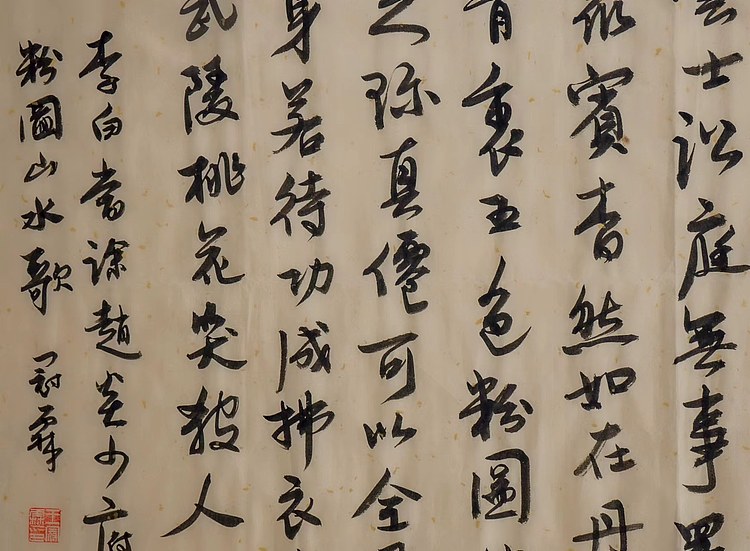 雲士訟庭無事羅
眾賓杳然如在丹
青裏五色粉圖
足珍真僊可以全
身若待功成拂衣
武陵桃花笑殺人
李白當塗趙炎少府
粉圖山水歌